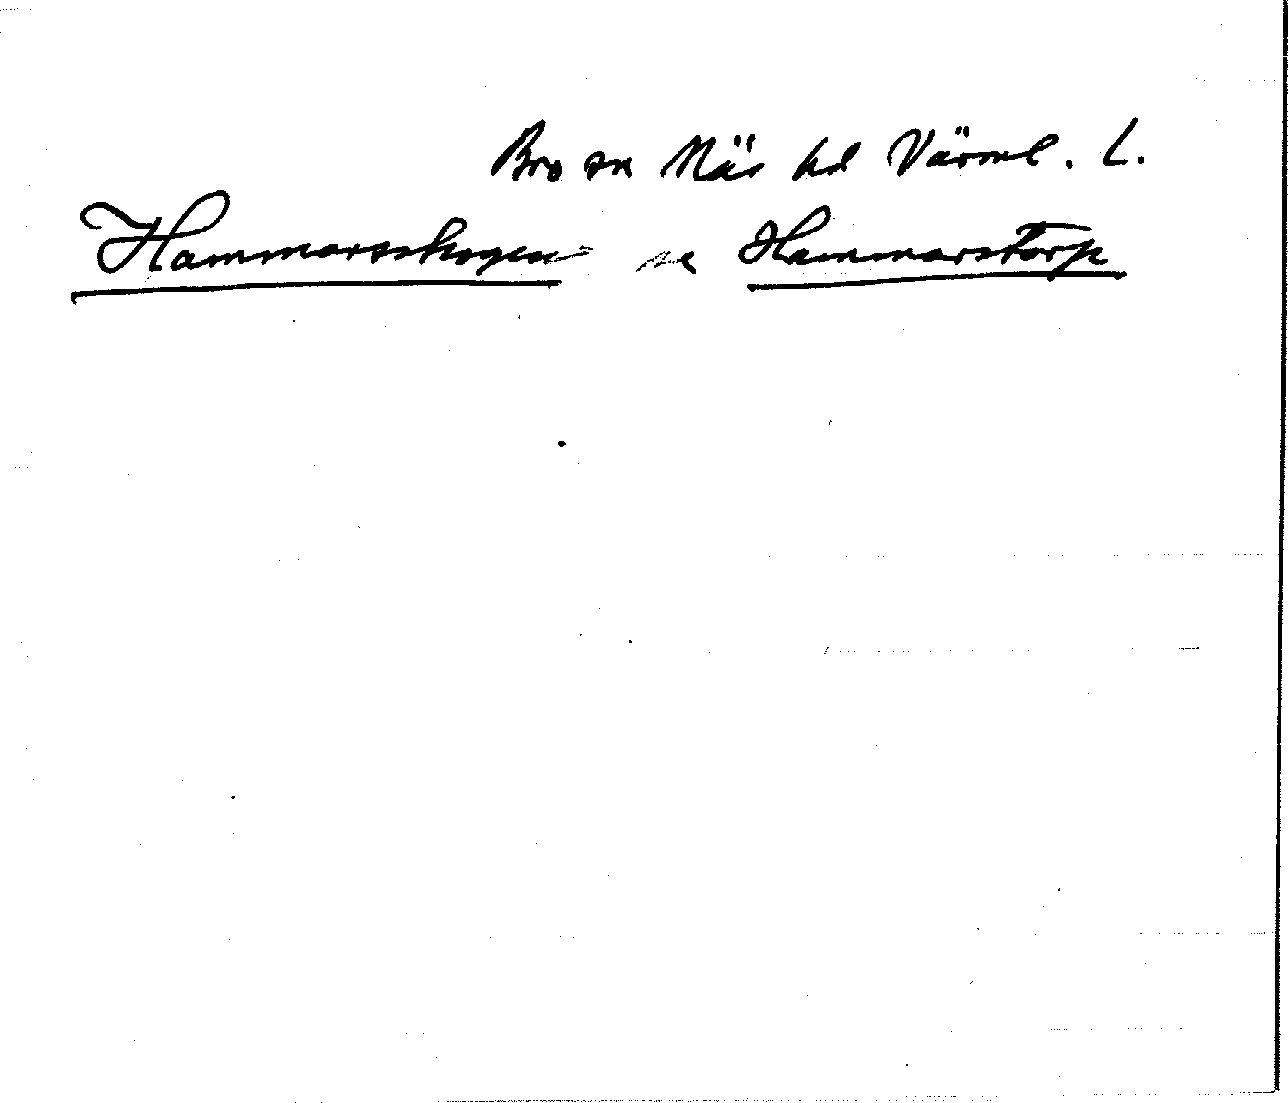 Bro sn Näs hd Värml. L.
Hammarsskogen se Hammarstorp